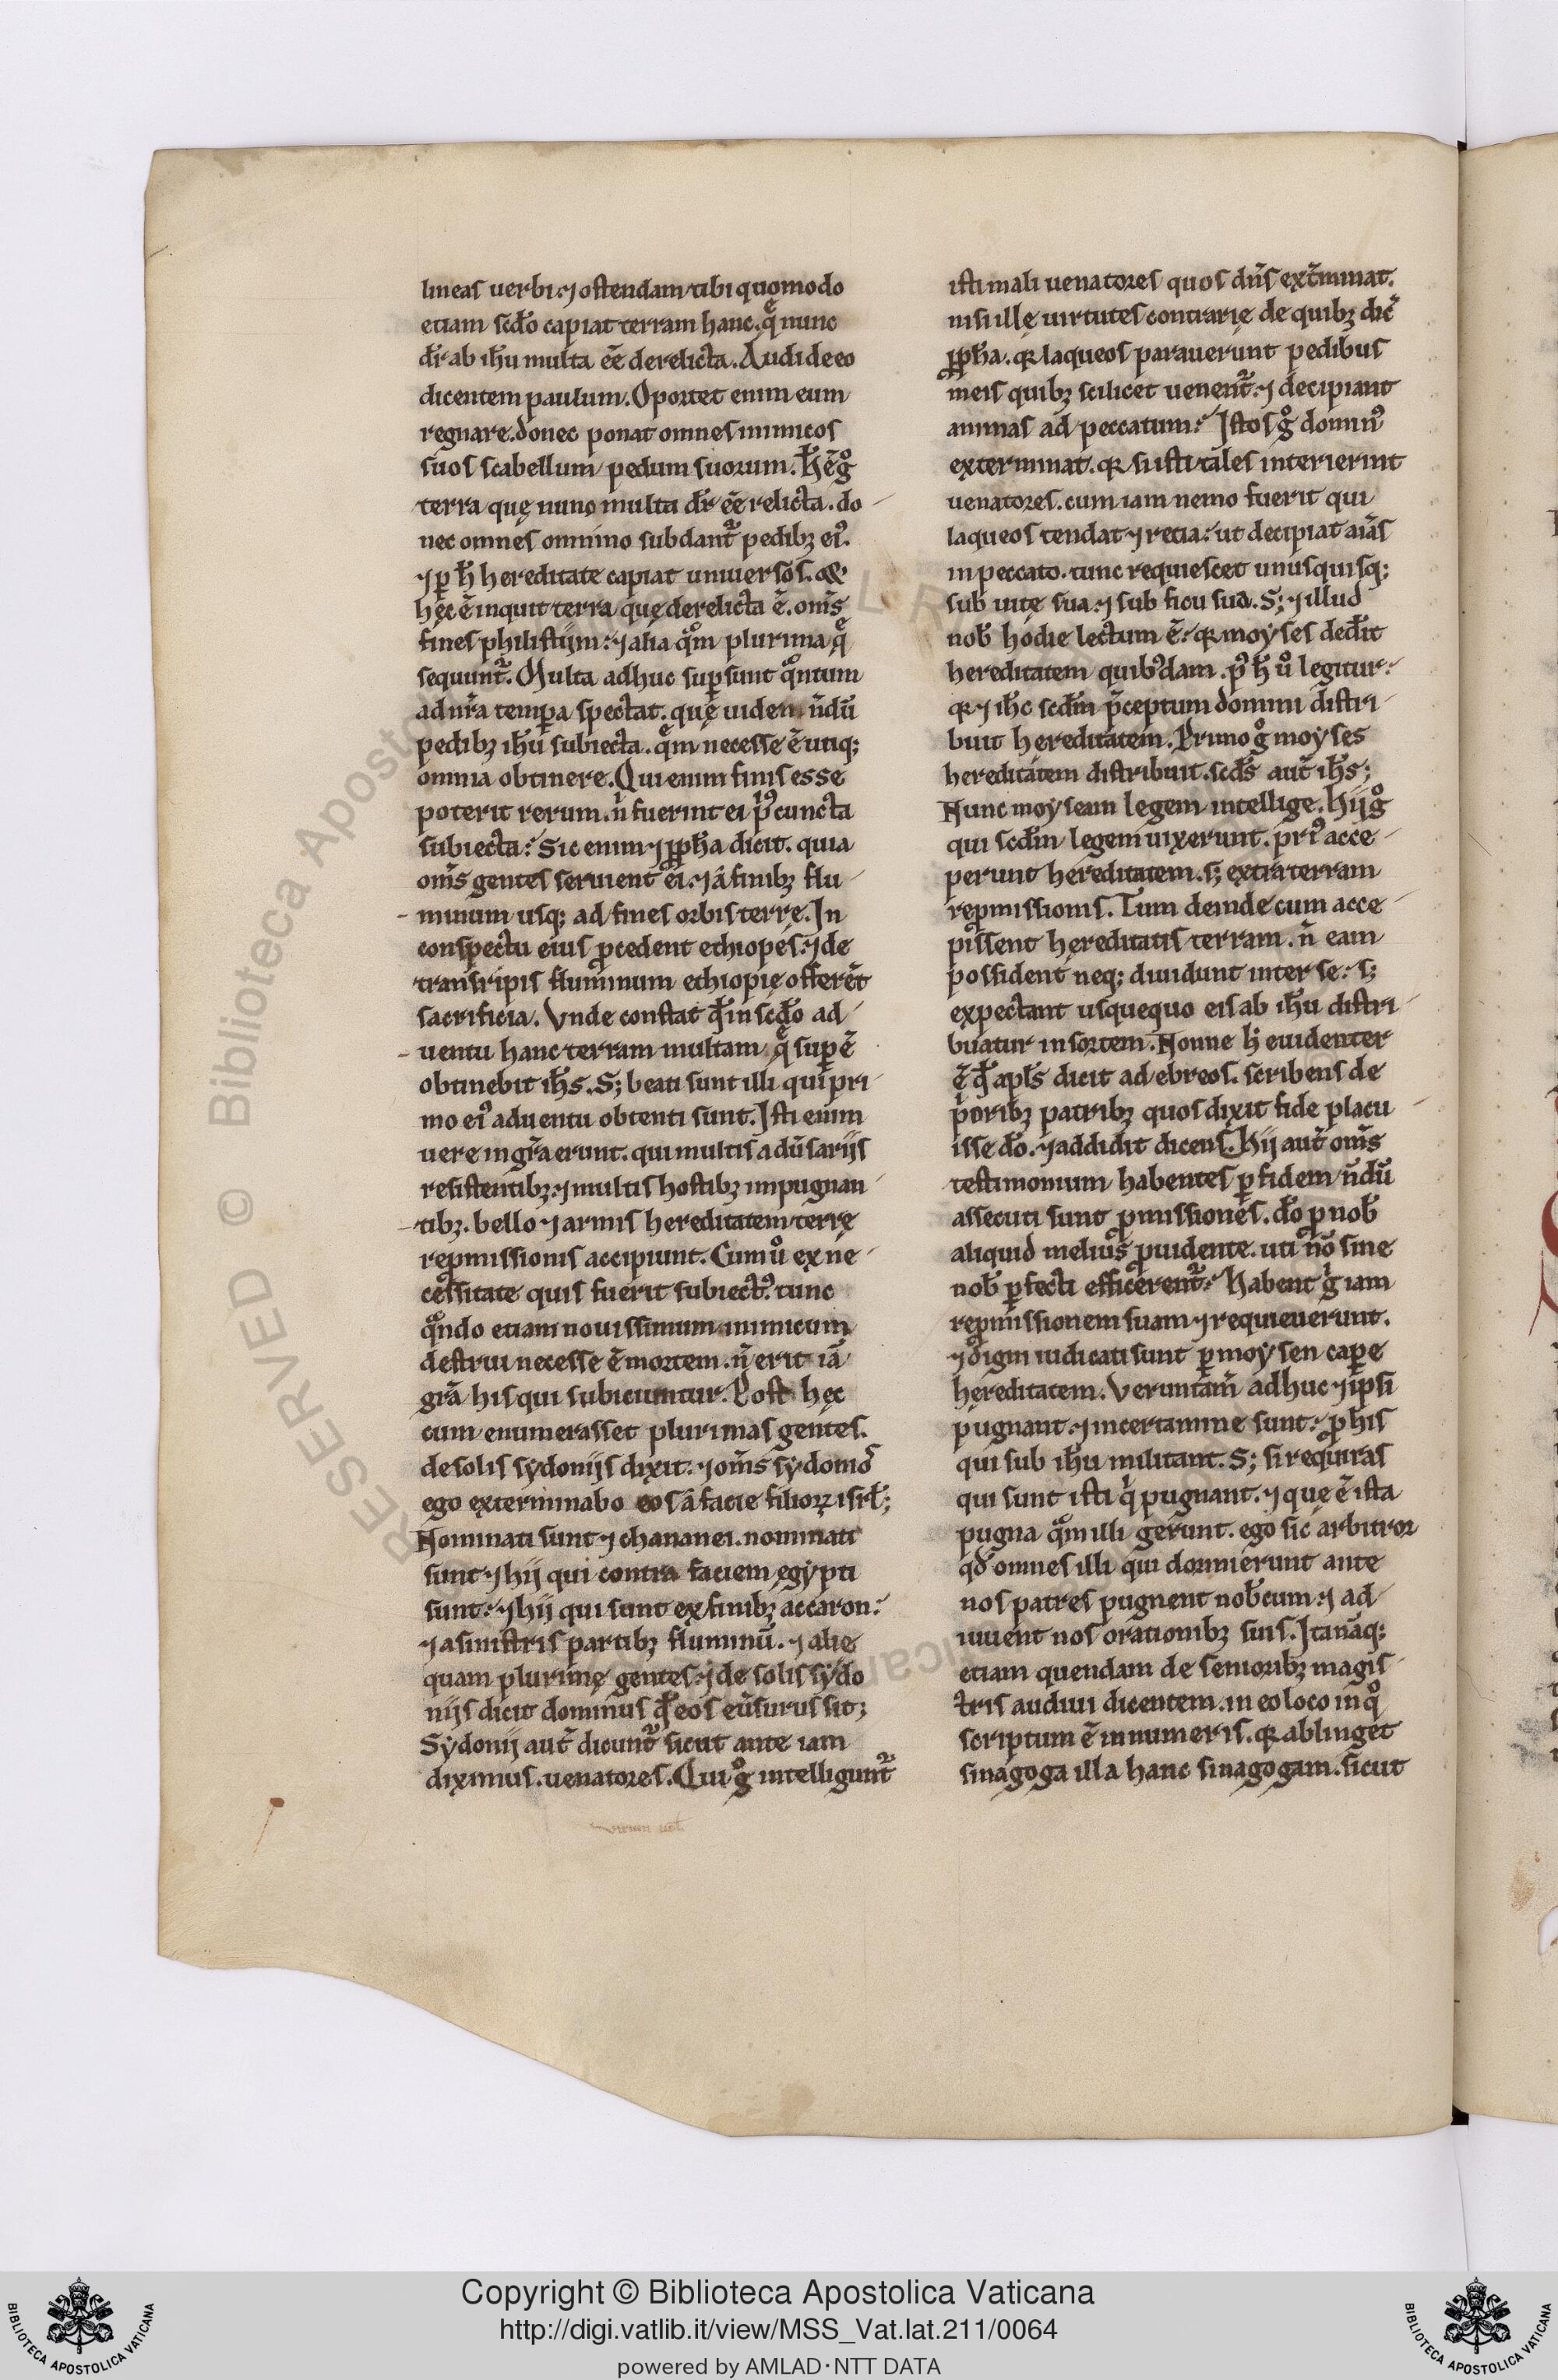 lineas uerbi. ⁊ ostendam tibi quomodo
etiam scd̄o capiat terram hanc. q̄ nunc
dr̄ ab ih̄u multa ēē derelicta. Audi de eo
dicentem paulum. Oportet enim eum
regnare. donec ponat omnes inimicos
suos scabellum pedum suorum. h̄ ē gͦ
terra quę nunc multa dr̄ ēē relicta. do
nec omnes omnino subdant᷑ pedibꝫ eiꝰ.
⁊ ꝑ h̄ hereditate capiat uniuersos.
hęc ē inquit terra quę derelicta ē. om̄s
fines philistijm. ⁊ alia qͦm plurima q̄
sequunt᷑. Multa adhuc suꝑsunt qͦntum
ad nr̄a temꝑa spectat. quę uidem n̄dū
pedibꝫ ih̄u subiecta. qͣm necesse ē utiqꝫ
omnia obtinere. Qui enim finis esse
poterit rerum. nͥ fuerint ei pͥꝰ cuncta
subiecta. Sic enim ⁊ ꝓph̄a dicit. quia
om̄s gentes seruient ei. ⁊ a finibꝫ flu
minum usqꝫ ad fines orbis terrę. In
conspectu eius ꝓcedent ethiopes. ⁊ de
transripis fluminum ethiopię offerēt
sacrificia. Vnde constat qd̄ in scd̄o ad
uentu hanc terram multam q̄ suꝑ ē
obtinebit ih̄s. Sꝫ beati sunt illi qui pri
mo eiꝰ aduentu obtenti sunt. Isti enim
uere in gr̄a erunt. qui multis adūsarijs
resistentibꝫ. ⁊ multis hostibꝫ impugnan
tibꝫ. bello ⁊ armis hereditatem terrę
reꝓmissionis accipiunt. Cum uͦ ex ne
cessitate quis fuerit subiectꝰ. tunc
qͣndo etiam nouissimum inimicum
destrui necesse ē mortem. n̄ erit iā
gr̄a his qui subiciuntur. Post hęc
cum enumerasset plurimas gentes.
de solis sydonijs dixit. ⁊ om̄s sydonioˢ
ego exterminabo eos a facie filioꝝ isrl̄;
Nominati sunt ⁊ chananei. nominati
sunt ⁊ hij qui contra faciem egypti
sunt. ⁊ hij qui sunt ex finibꝫ accaron.
⁊ a sinistris partibꝫ fluminū. ⁊ alię
quam plurimę gentes. ⁊ de solis sydo
nijs dicit dominus qd̄ eos eūsurus sit;
Sydonij aut̄ dicunt᷑ sicut ante iam
diximus. uenatores. Qui gͦ intelligunt᷑
isti mali uenatores quos dn̄s ext̄minat.
nisi illę uirtutes contrarię de quibꝫ dic̄
ꝓph̄a. qꝛ laqueos parauerunt pedibus
meis quibꝫ scilicet uenent᷑. ⁊ decipiant
animas ad peccatum. Istos gͦ dominꝰ
exterminat. qꝛ si isti tales interierint
uenatores. cum iam nemo fuerit qui
laqueos tendat ⁊ retia. ut decipiat aīas
in peccato. tunc requiescet unusquisqꝫ
sub uite sua. ⁊ sub ficu sua. Sꝫ ⁊ illud
nob̄ hodie lectum ē. qꝛ moyses ded̄it
hereditatem quibꝰdam. pꝰ h̄ uͦ legitur.
qꝛ ⁊ ih̄c scd̄m p̄ceptum domini distri
buit hereditatem. Primo gͦ moyses
hereditatem distribuit. scd̄s aut̄ ih̄s;
Nunc moysean legem intellige. hij gͦ
qui scd̄m legem uixerunt. priꝰ acce
perunt hereditatem. sꝫ extra terram
reꝓmissionis. Tum deinde cum acce
pissent hereditatis terram. n̄ eam
possident neqꝫ diuidunt inter se. sꝫ
expectant usquequo eis ab ih̄u distri
buatur in sortem. Nonne h̄ euidenter
ē qd̄ apl̄s dicit ad ebreos. scribens de
pͥoribꝫ patribꝫ quos dixit fide placu
isse d̄o. ⁊ addidit dicens. Hij aut̄ om̄s
testimonium habentes ꝑ fidem n̄dū
assecuti sunt ꝓmissiones. d̄o ꝓ nob̄
aliquid melius ꝓuidente. uti nō sine
nob̄ ꝑfecti efficerent᷑. Habent gͥ iam
reꝓmissionem suam ⁊ requieuerunt.
⁊ digni iudicati sunt ꝑ moysen capꝑe
hereditatem. Veruntam̄ adhuc ⁊ ipsi
pugnant. ⁊ in certamine sunt. ꝓ his
qui sub ih̄u militant. Sꝫ si requiras
qui sunt isti qͥ pugnant. ⁊ quę ē ista
pugna qͣm illi gerunt. ego sic arbitror
qd̄ omnes illi qui dormierunt ante
nos patres pugnent nob̄cum. ⁊ ad
iuuent nos orationibꝫ suis. Ita nāqꝫ
etiam quendam de senioribꝫ magis
tris audiui dicentem. in eo loco in qͦ
scriptum ē in numeris. qꝛ ablinget
sinagoga illa hanc sinagogam. sicut
RESERVED © Biblioteca Aposto
Copyright © Biblioteca Apostolica Vaticana
http://digi.vatlib.it/view/MSS_Vat.lat.211/0064
powered by AMLAD·NTT DATA
BIBLIOTECA APOSTOLICA VATICANA
BIBLIOTECA APOSTOLICA VATICANA